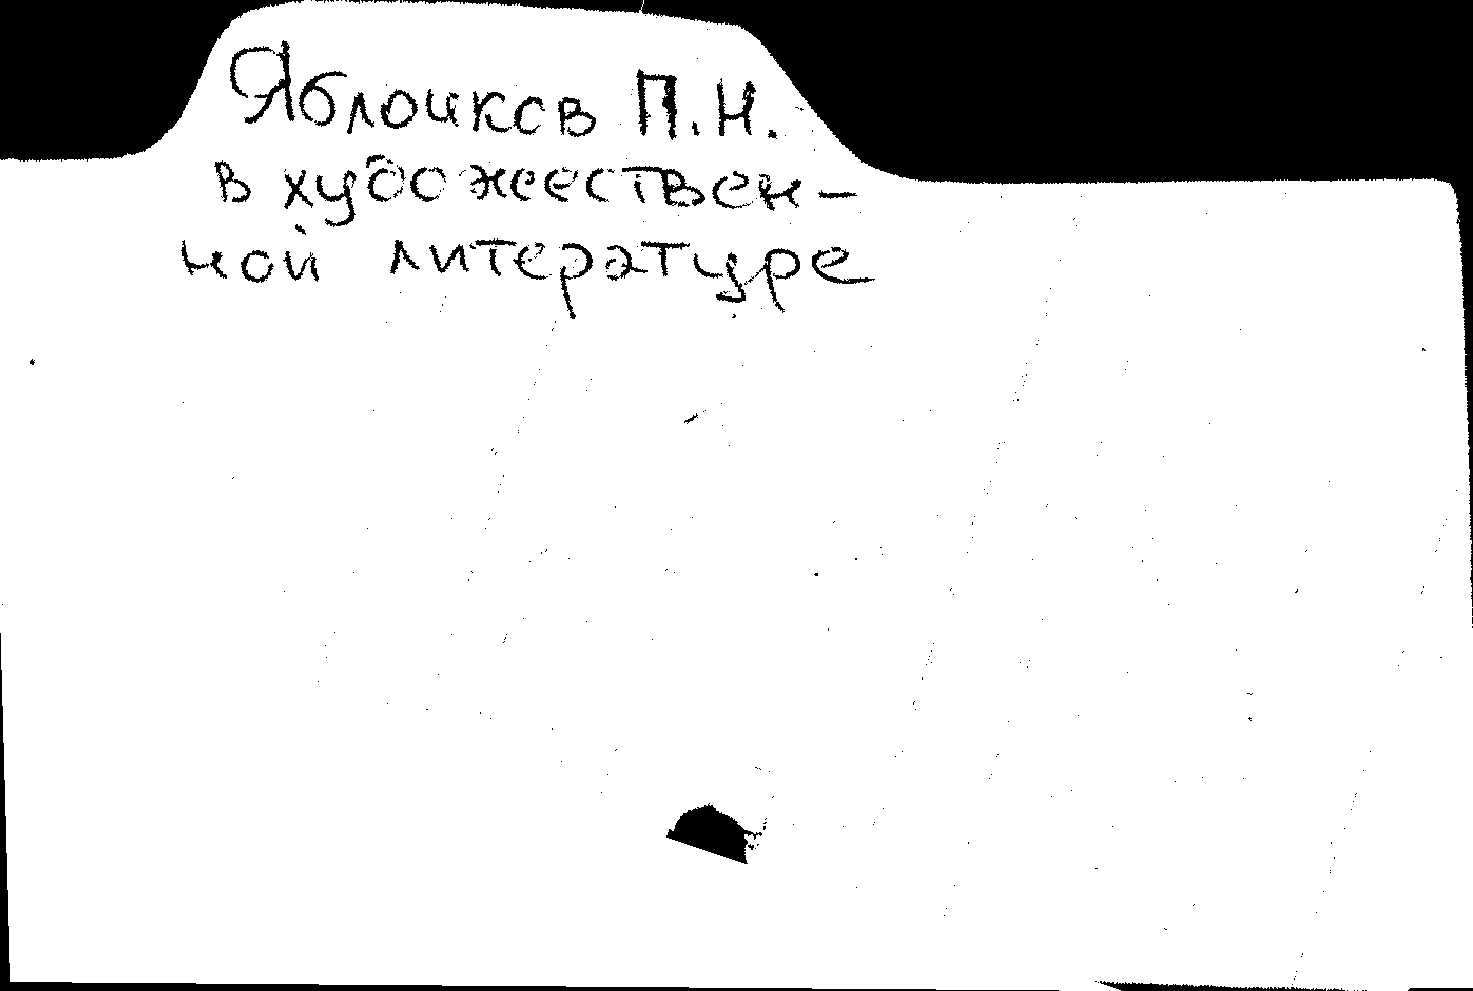 Яблочков П.Н.
в художествен-
ной литературе